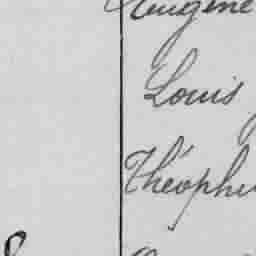 Eugène
Louis
Théophi